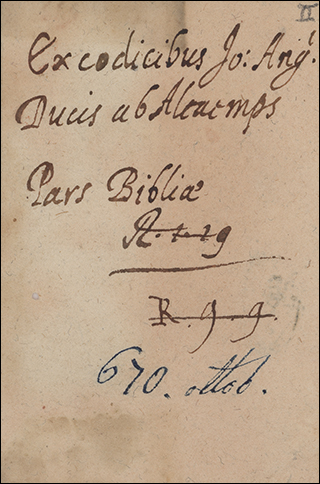 II
Ex codicibus Jo: Ang:
Ducis ab Altaemps
Pars Bibliæ
R. 1. 19
R. 9. 9.
670. ottob.